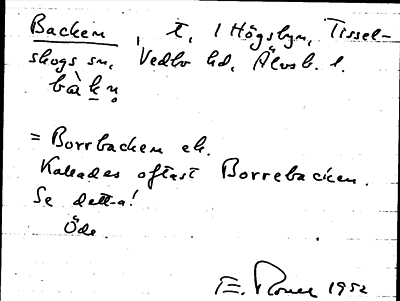 Backen, t, 1 Högsbyn, Tissel-
skogs sn, Vedbo hd, Älvsb. l.
bàkn̥
= Borrbacken ek.
Kallades oftast Borrebacken.
Se detta!
Öde.
1952